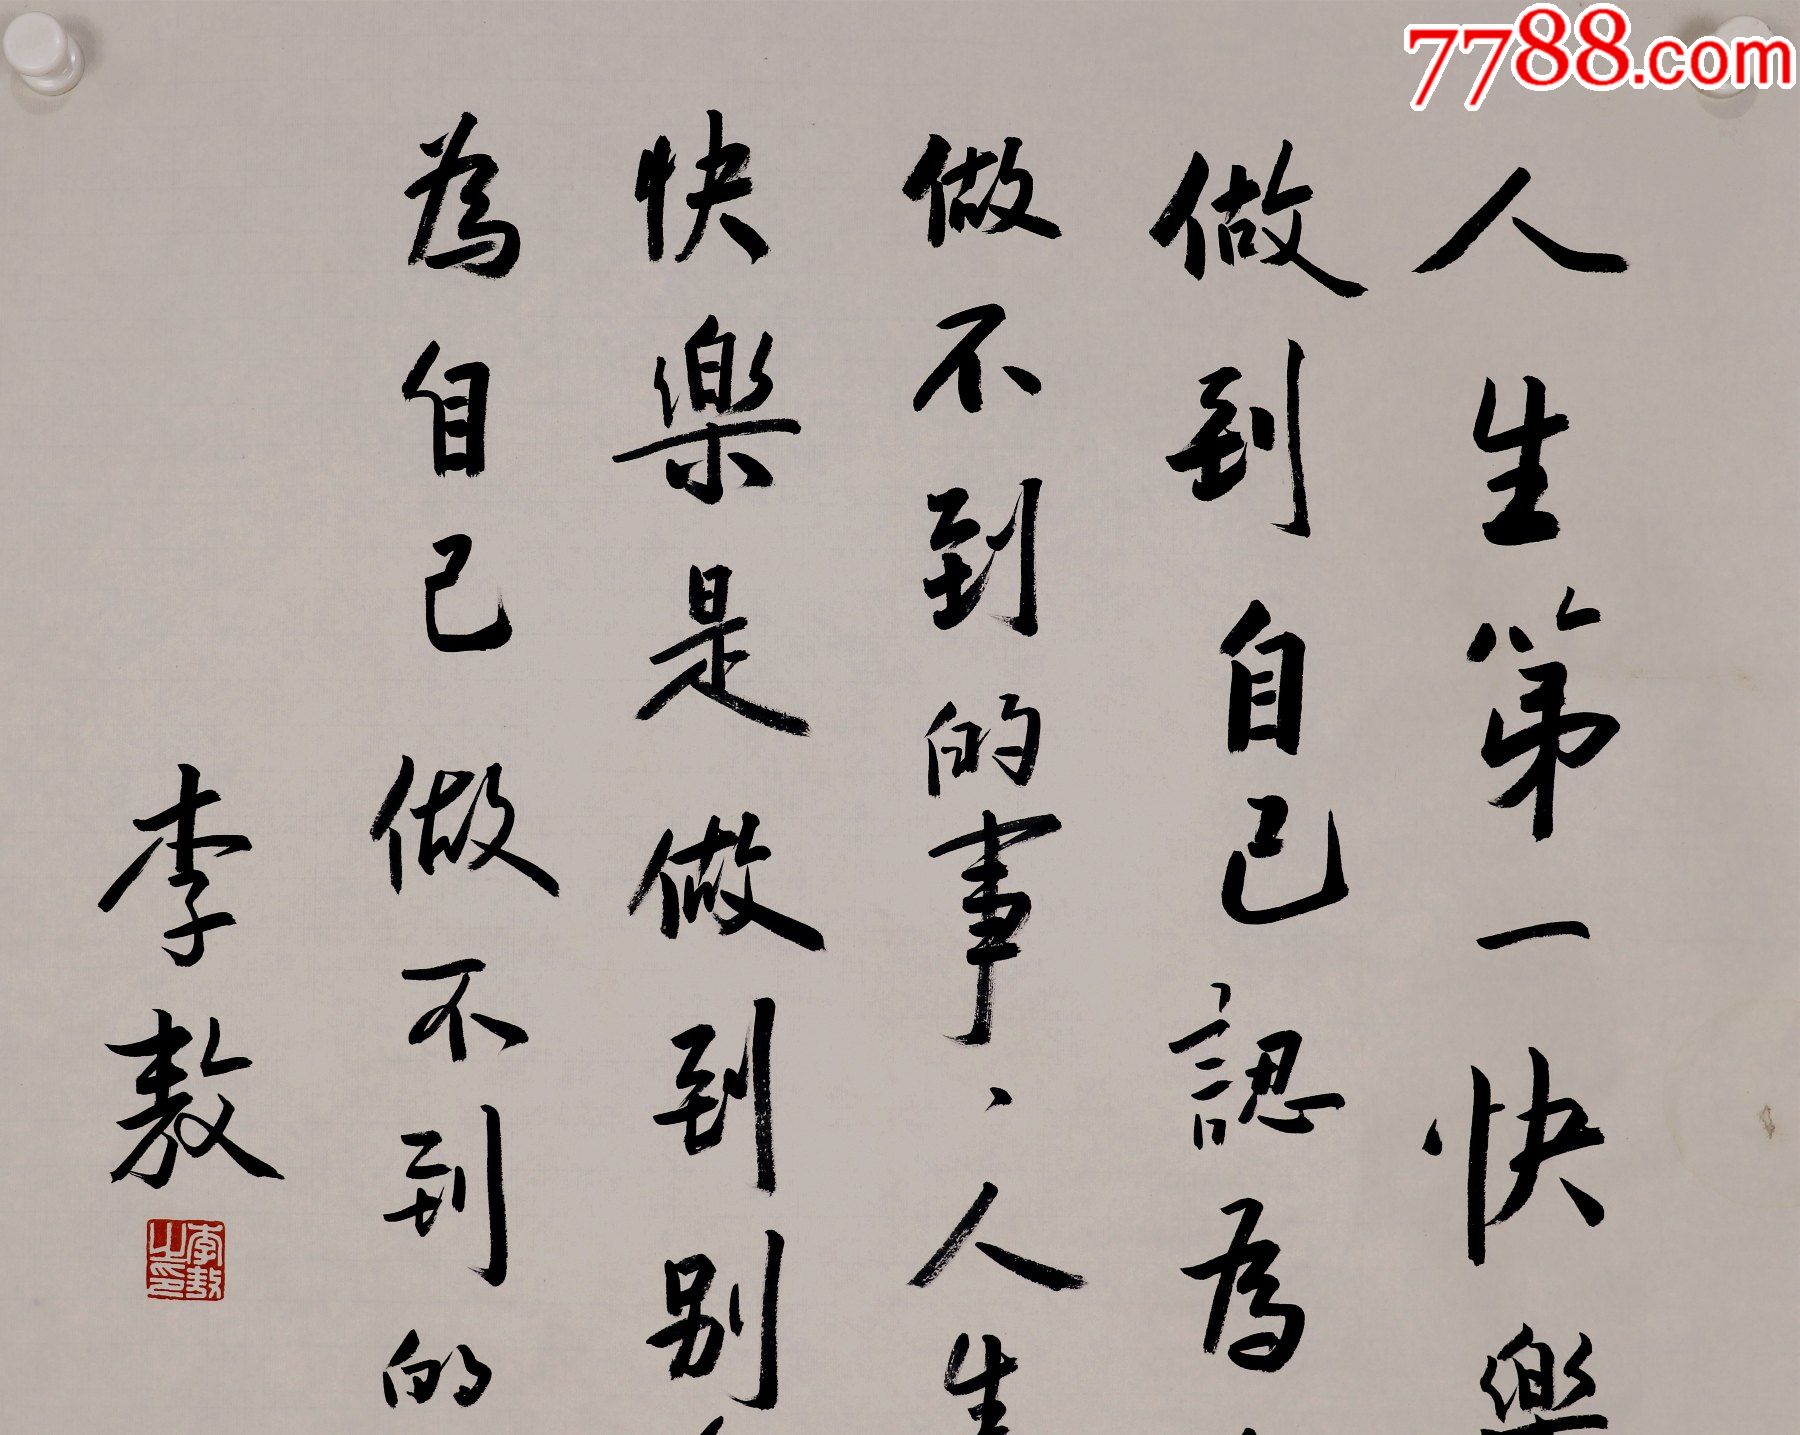 人生第一快樂
做到自己認為
做不到的事、人生
快樂是做到别
為自己做不到的
李敖
李敖之印
7788.com